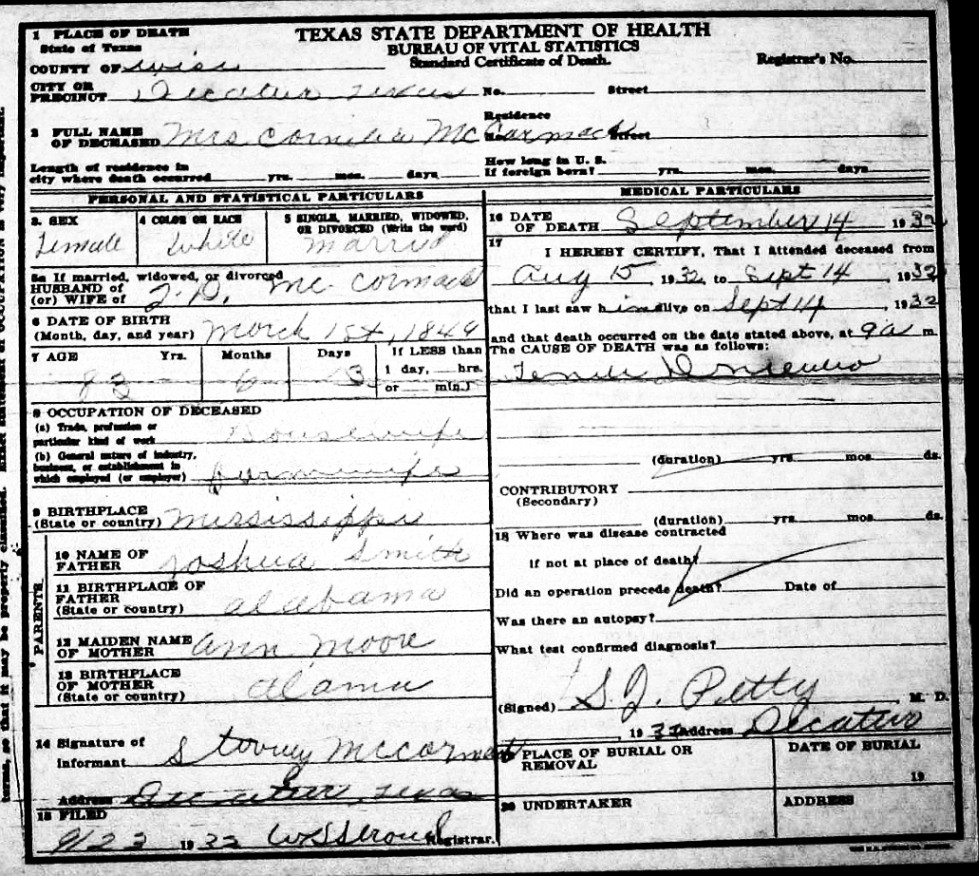 TEXAS STATE DEPARTMENT OF HEALTH
BUREAU OF VITAL STATISTICS
Standard Certificate of Death.
Registrar's No.
1 PLACE OF DEATH
State of Texas
COUNTY OF Wise
CITY OR PRECINCT Decatur Texas No. Street
Residence
2 FULL NAME OF DECEASED Mrs Cornelia McCormack No. Street
Length of residence in city where death occurred yrs. mos. days
How long in U. S. If foreign born? yrs. mos. days
PERSONAL AND STATISTICAL PARTICULARS
3. SEX Female
4 COLOR OR RACE White
5 SINGLE, MARRIED, WIDOWED, OR DIVORCED (Write the word) Married
5a If married, widowed, or divorced
HUSBAND of
(or) WIFE of Mc Cormack
6 DATE OF BIRTH
(Month, day, and year) March 1st, 1849
7 AGE Yrs. Months Days If LESS than
83 6 13 1 day, hrs.
or min.)
8 OCCUPATION OF DECEASED
(a) Trade, profession or particular kind of work Housewife
(b) General nature of industry, business, or establishment in which employed (or employer) farmwife
9 BIRTHPLACE
(State or country) Mississippi
PARENTS
10 NAME OF FATHER Joshua Smith
11 BIRTHPLACE OF FATHER
(State or country) Alabama
12 MAIDEN NAME OF MOTHER Ann Moore
13 BIRTHPLACE OF MOTHER
(State or country) Alama
14 Signature of Informant McCormack
Address Decatur, Texas
15 FILED
9/22 1932 Registrar.
MEDICAL PARTICULARS
16 DATE OF DEATH September 14 1932
17 I HEREBY CERTIFY, That I Attended deceased from
Aug 15, 1932, to Sept 14, 1932
that I last saw him alive on Sept 14 1932
and that death occurred on the date stated above, at 9a m.
The CAUSE OF DEATH was as follows:
(duration) yrs. mos. ds.
CONTRIBUTORY
(Secondary)
(duration) yrs. mos. ds.
18 Where was disease contracted
if not at place of death?
Did an operation precede death? Date of
Was there an autopsy?
What test confirmed diagnosis?
(Signed) S. J. Petty, M. D.
1932 Address Decatur
PLACE OF BURIAL OR REMOVAL
DATE OF BURIAL
19
20 UNDERTAKER
ADDRESS
terms, so that it may be properly classified.